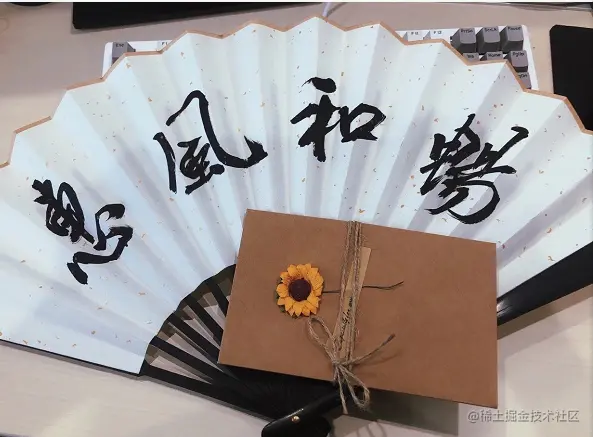 惠風和暢
@稀土掘金技术社区